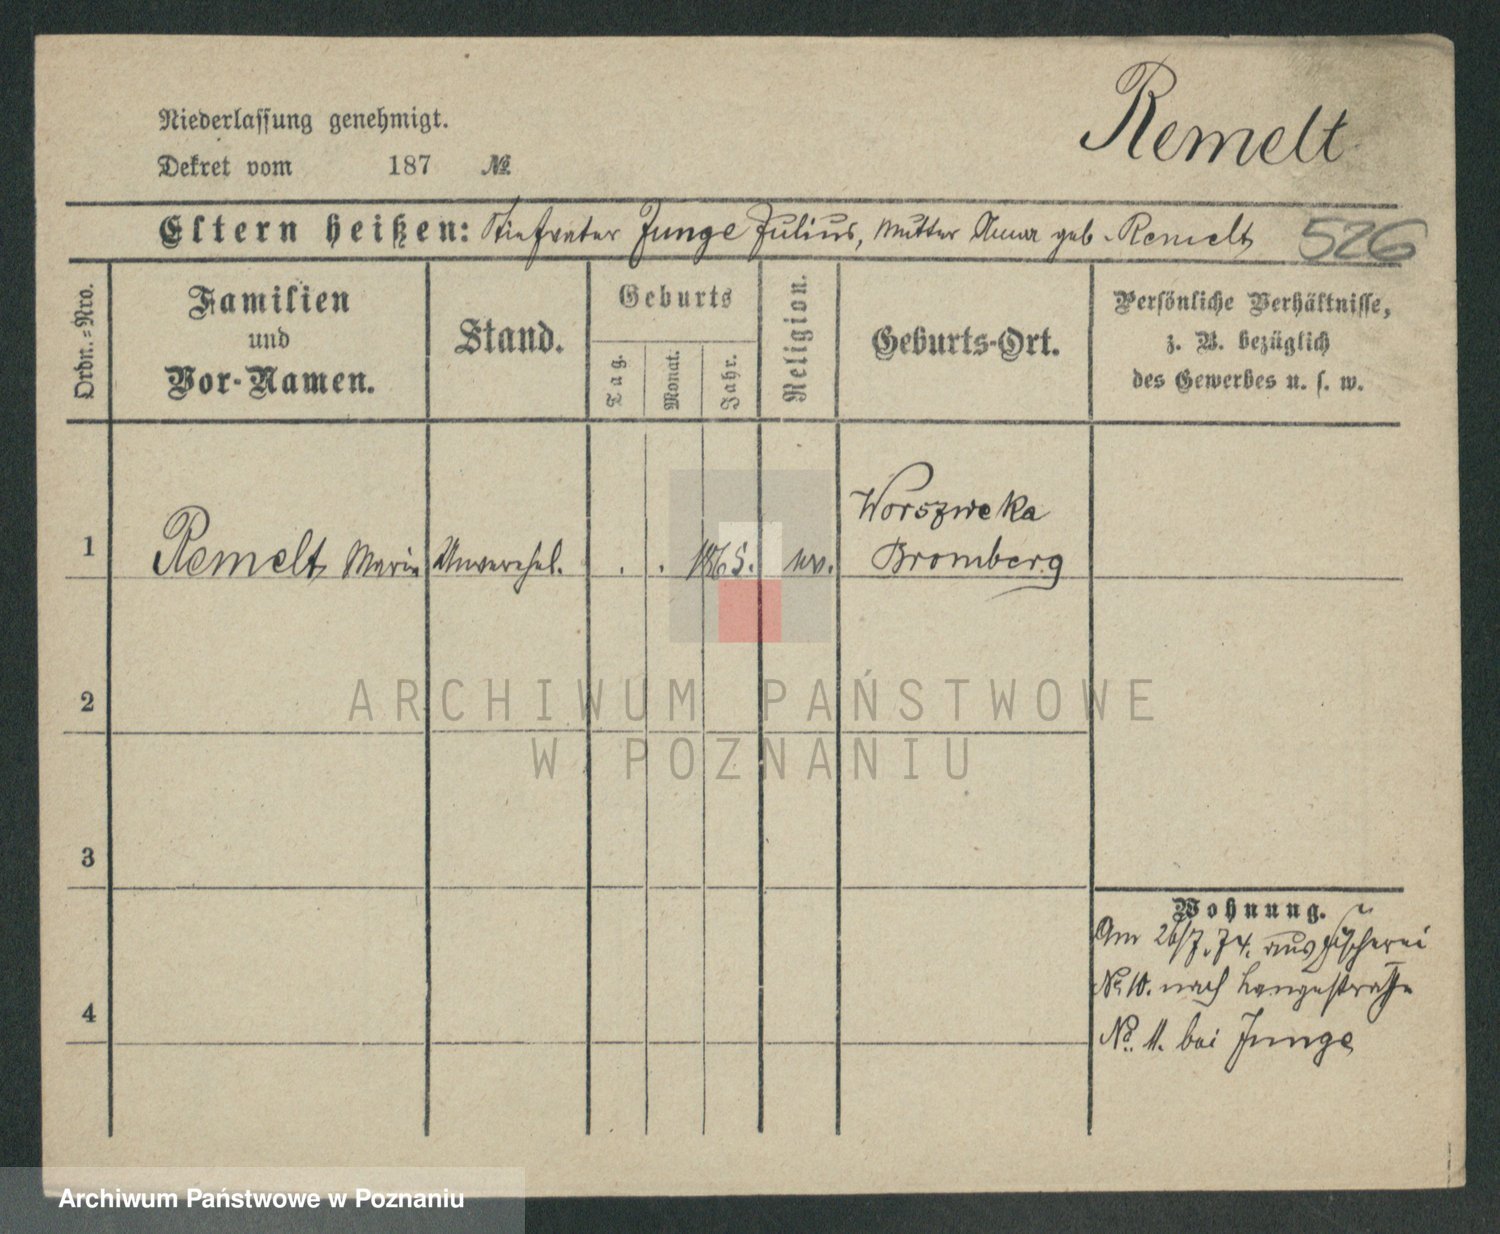 Remelt
Niederlassung genehmigt.
Dekret vom 187 №
Eltern heißen: Stiefvater Junge Julius, Mutter Anna geb. Remelt
526
Ordn.-Nro.
Familien
und
Vor-Namen.
Stand.
Geburts
Tag.
Monat.
Jahr.
Religion.
Geburts-Ort.
Persönliche Verhältnisse,
z. B. bezüglich
des Gewerbes u. s. w.
1 Remelt Marie Unverehel. . . 1865. ev.
Bromberg
2
ARCHIWUM PAŃSTWOWE
W POZNANIU
3
4
Wohnung.
Am 26/7. 74. aus Fischerei
No. 10. nach Langestraße
No. 11. bei Junge
Archiwum Państwowe w Poznaniu